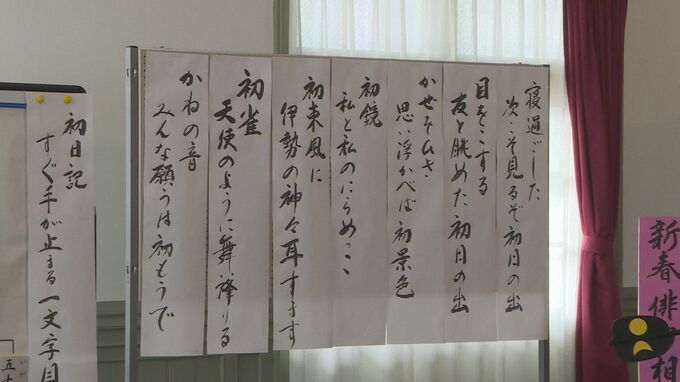 寝過ごした
次こそ見るぞ初日の出
目をこする
友と眺めた初日の出
思い浮かべば初景色
初鏡
私と私のにらめっこ
初東風に
伊勢の神々耳すます
初雀
天使のように舞降りる
かねの音
みんな願うは初もうで
初日記
すぐ手が止まる一文字目
新春俳
相
五十